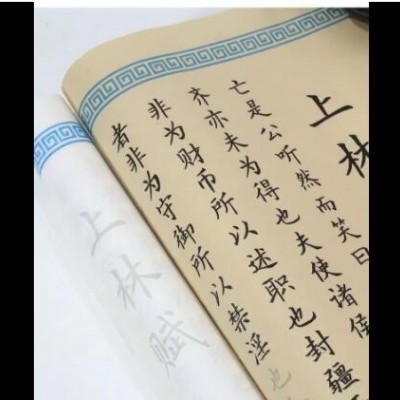 上林
亡是公听然而笑曰
齐亦未为得也夫使诸侯
非为财币所以述职也封疆
者非为守御所以禁淫也
上林赋